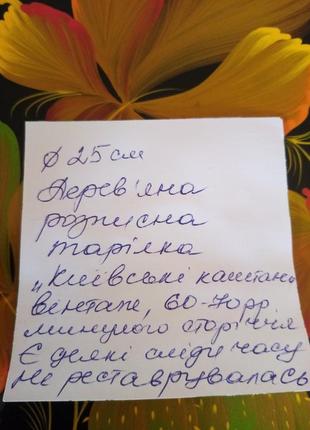 ⌀ 25 см
Дерев'яна
розписна
тарілка
„Київські каштани
вінтаж, 60-70рр
минулого сторіччя
Є деякі сліди часу
не реставрувалась